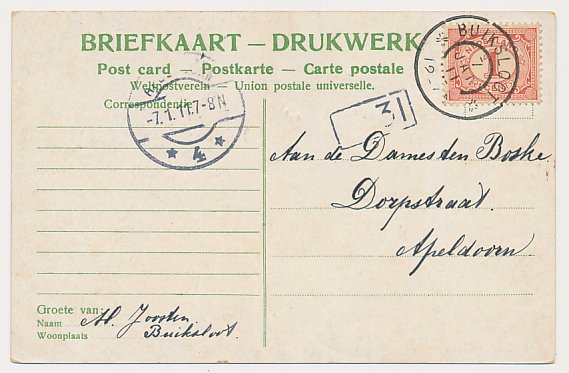 BRIEFKAART — DRUKWERK
Post card — Postkarte — Carte postale
Weltpostverein — Union postale universelle.
Correspondentie
-7.1.11.7-8N
4
BUIKSLOOT
31
Aan de Dames ten Boske
Dorpstraat
Apeldoorn
Groete van:
Naam M. Joosten
Woonplaats Buiksloot.